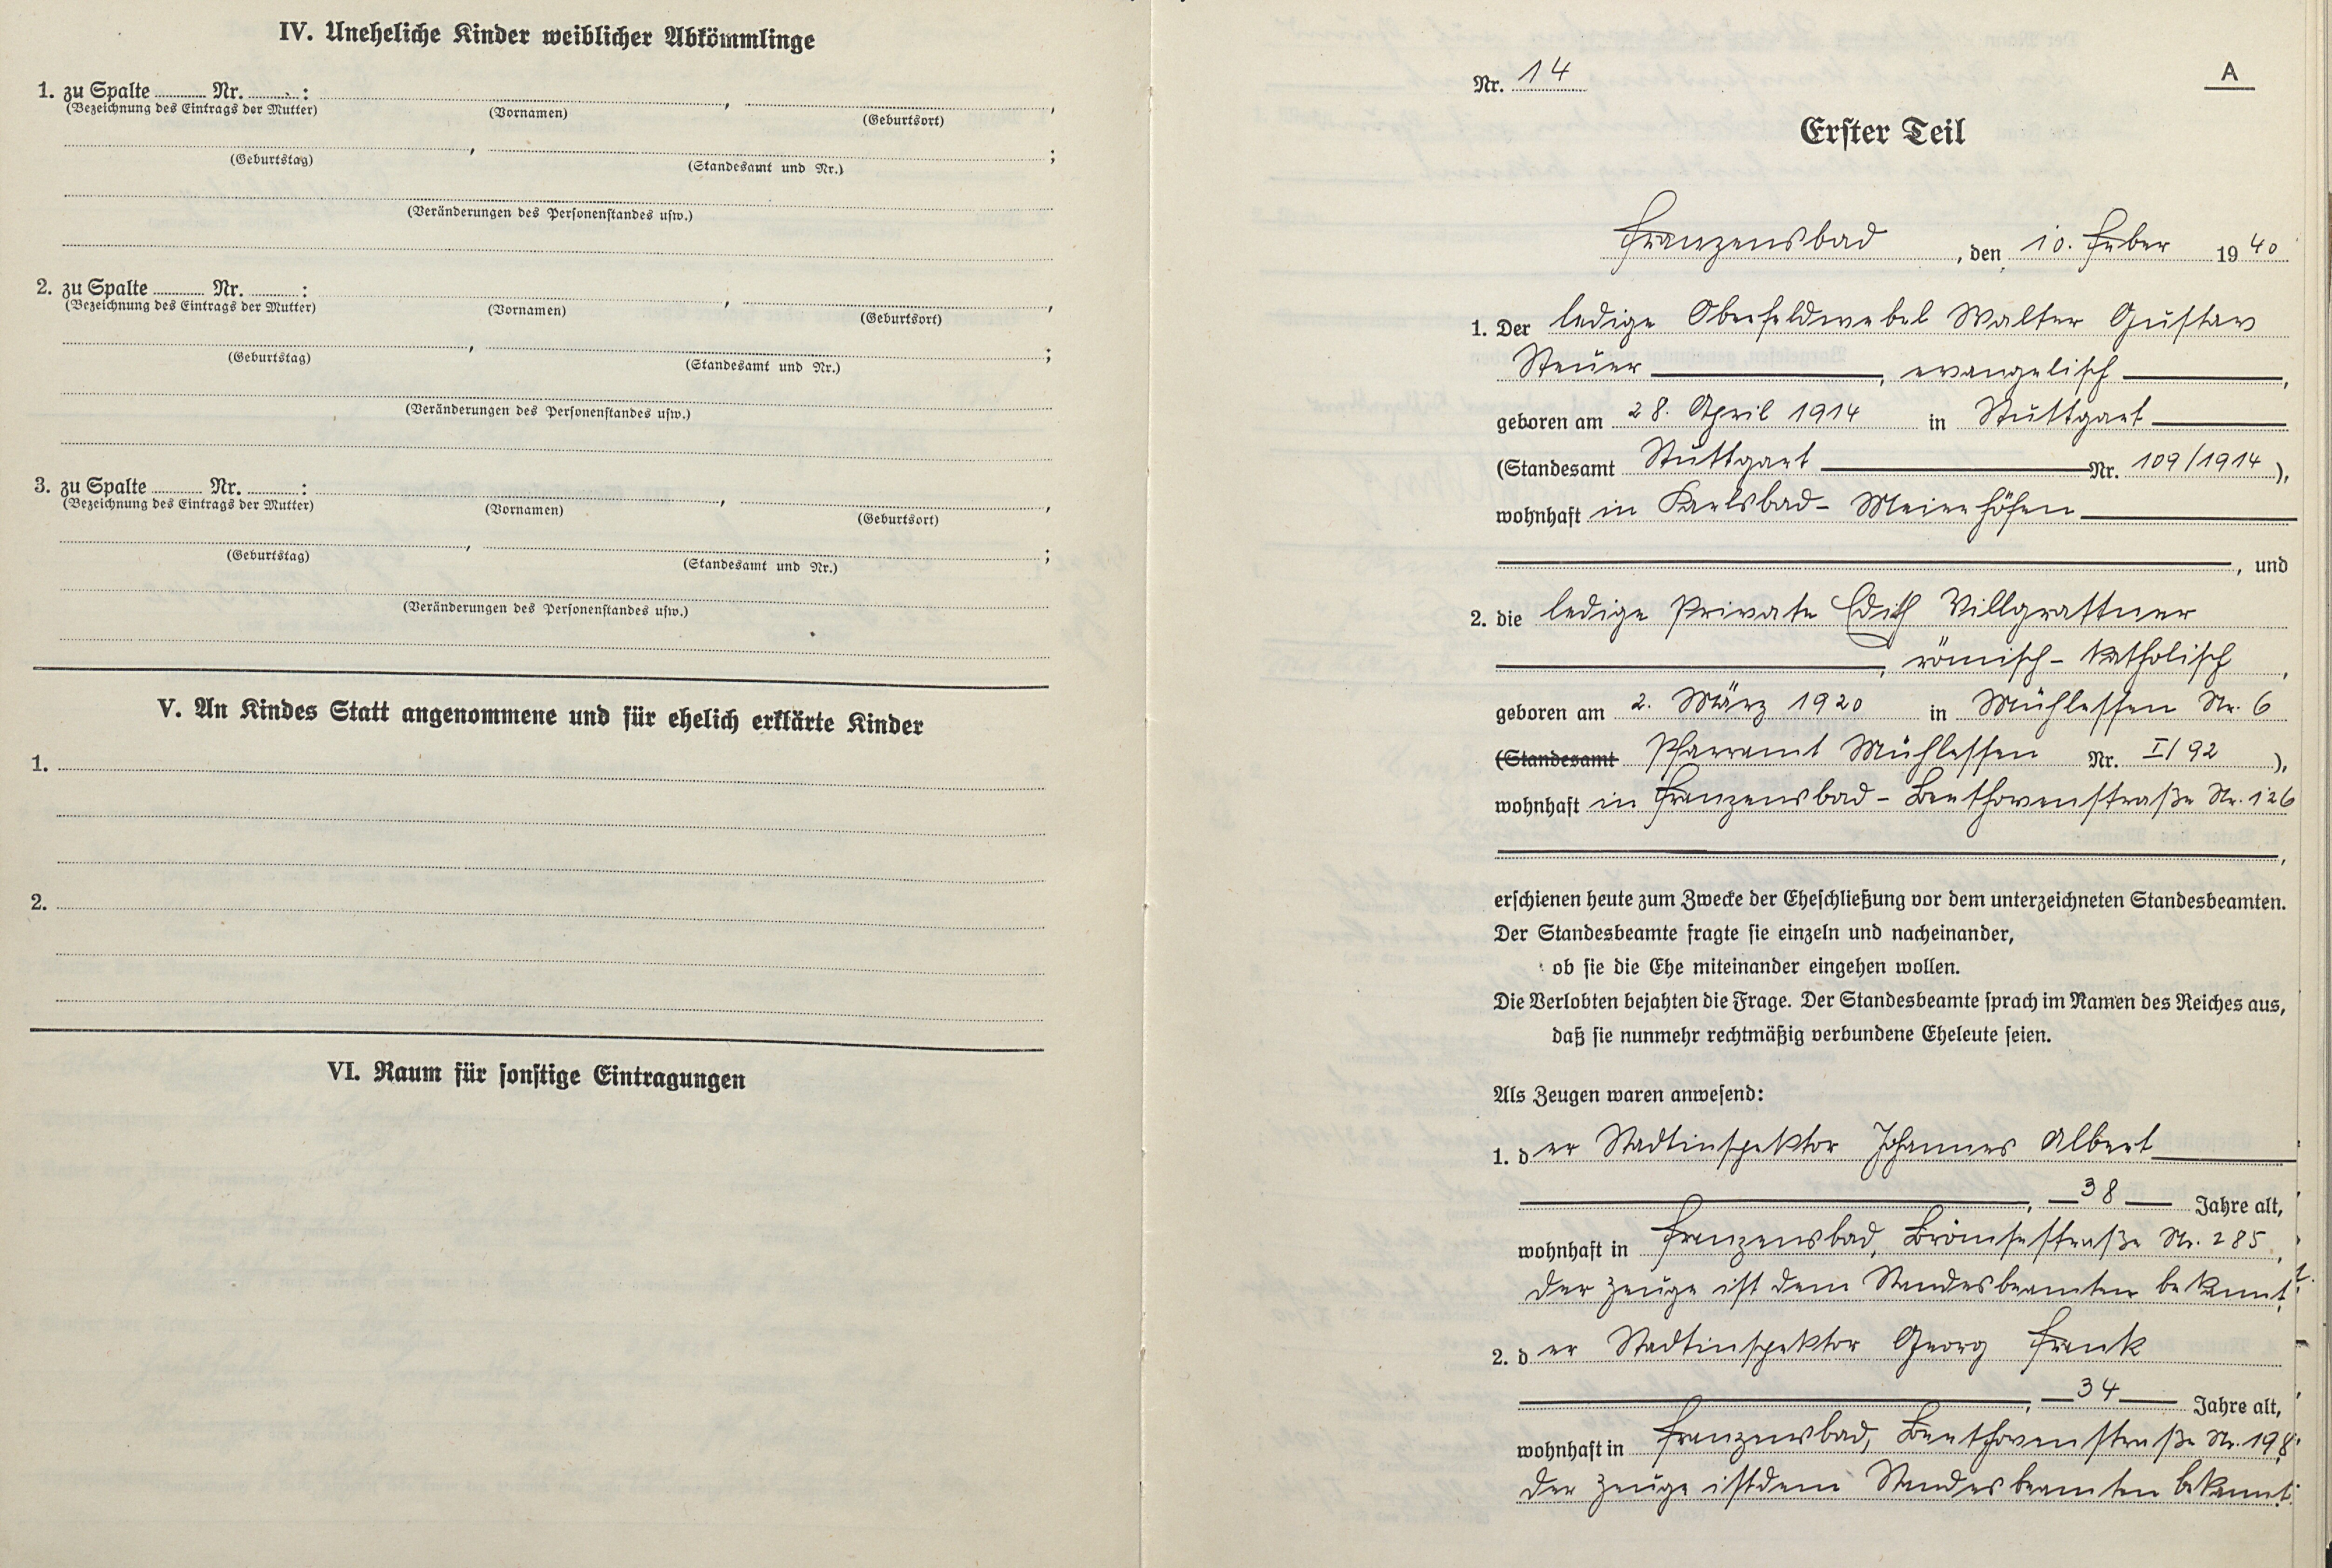 IV. Uneheliche Kinder weiblicher Abkömmlinge
1. zu Spalte ........ Nr. ........ : ........ , ........ ,
(Bezeichnung des Eintrags der Mutter) (Vornamen) (Geburtsort)
........ , ........ ;
(Geburtstag) (Standesamt und Nr.)
(Veränderungen des Personenstandes usw.)
2. zu Spalte ........ Nr. ........ : ........ , ........ ,
(Bezeichnung des Eintrags der Mutter) (Vornamen) (Geburtsort)
........ , ........ ;
(Geburtstag) (Standesamt und Nr.)
(Veränderungen des Personenstandes usw.)
3. zu Spalte ........ Nr. ........ : ........ , ........ ,
(Bezeichnung des Eintrags der Mutter) (Vornamen) (Geburtsort)
........ , ........ ;
(Geburtstag) (Standesamt und Nr.)
(Veränderungen des Personenstandes usw.)
V. An Kindes Statt angenommene und für ehelich erklärte Kinder
1.
2.
VI. Raum für sonstige Eintragungen
Nr. 14
A
Erster Teil
Franzensbad, den 10. Feber 1940
1. Der ledige Oberfeldwebel Walter Gustav
Steuer, evangelisch,
geboren am 28. April 1914 in Stuttgart
(Standesamt Stuttgart Nr. 109/1914),
wohnhaft in Karlsbad-Meierhöfen
, und
2. die ledige Private Edith Villgrattner
, römisch-katholisch,
geboren am 2. März 1920 in Mühlessen Nr. 6
(Standesamt Pfarramt Mühlessen Nr. I/92),
wohnhaft in Franzensbad-Beethovenstraße Nr. 126
,
erschienen heute zum Zwecke der Eheschließung vor dem unterzeichneten Standesbeamten.
Der Standesbeamte fragte sie einzeln und nacheinander,
ob sie die Ehe miteinander eingehen wollen.
Die Verlobten bejahten die Frage. Der Standesbeamte sprach im Namen des Reiches aus,
daß sie nunmehr rechtmäßig verbundene Eheleute seien.
Als Zeugen waren anwesend:
1. der Stadtinspektor Johannes Albert
, 38 Jahre alt,
wohnhaft in Franzensbad, Brömsestraße Nr. 285,
der Zeuge ist dem Standesbeamten bekannt.
2. der Stadtinspektor Georg Frank
, 34 Jahre alt,
wohnhaft in Franzensbad, Beethovenstraße Nr. 198.
der Zeuge ist dem Standesbeamten bekannt.